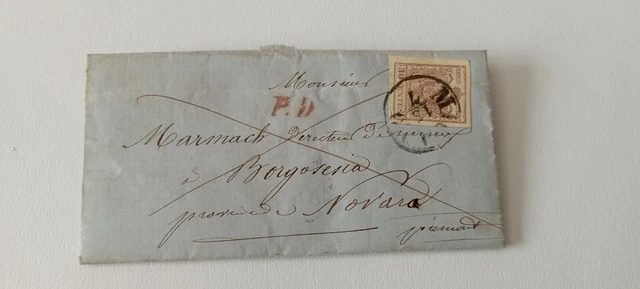 Monsieur
P.D
Marmach Directeur de mines
à
Borgosesia
province de Novara
piémont
M